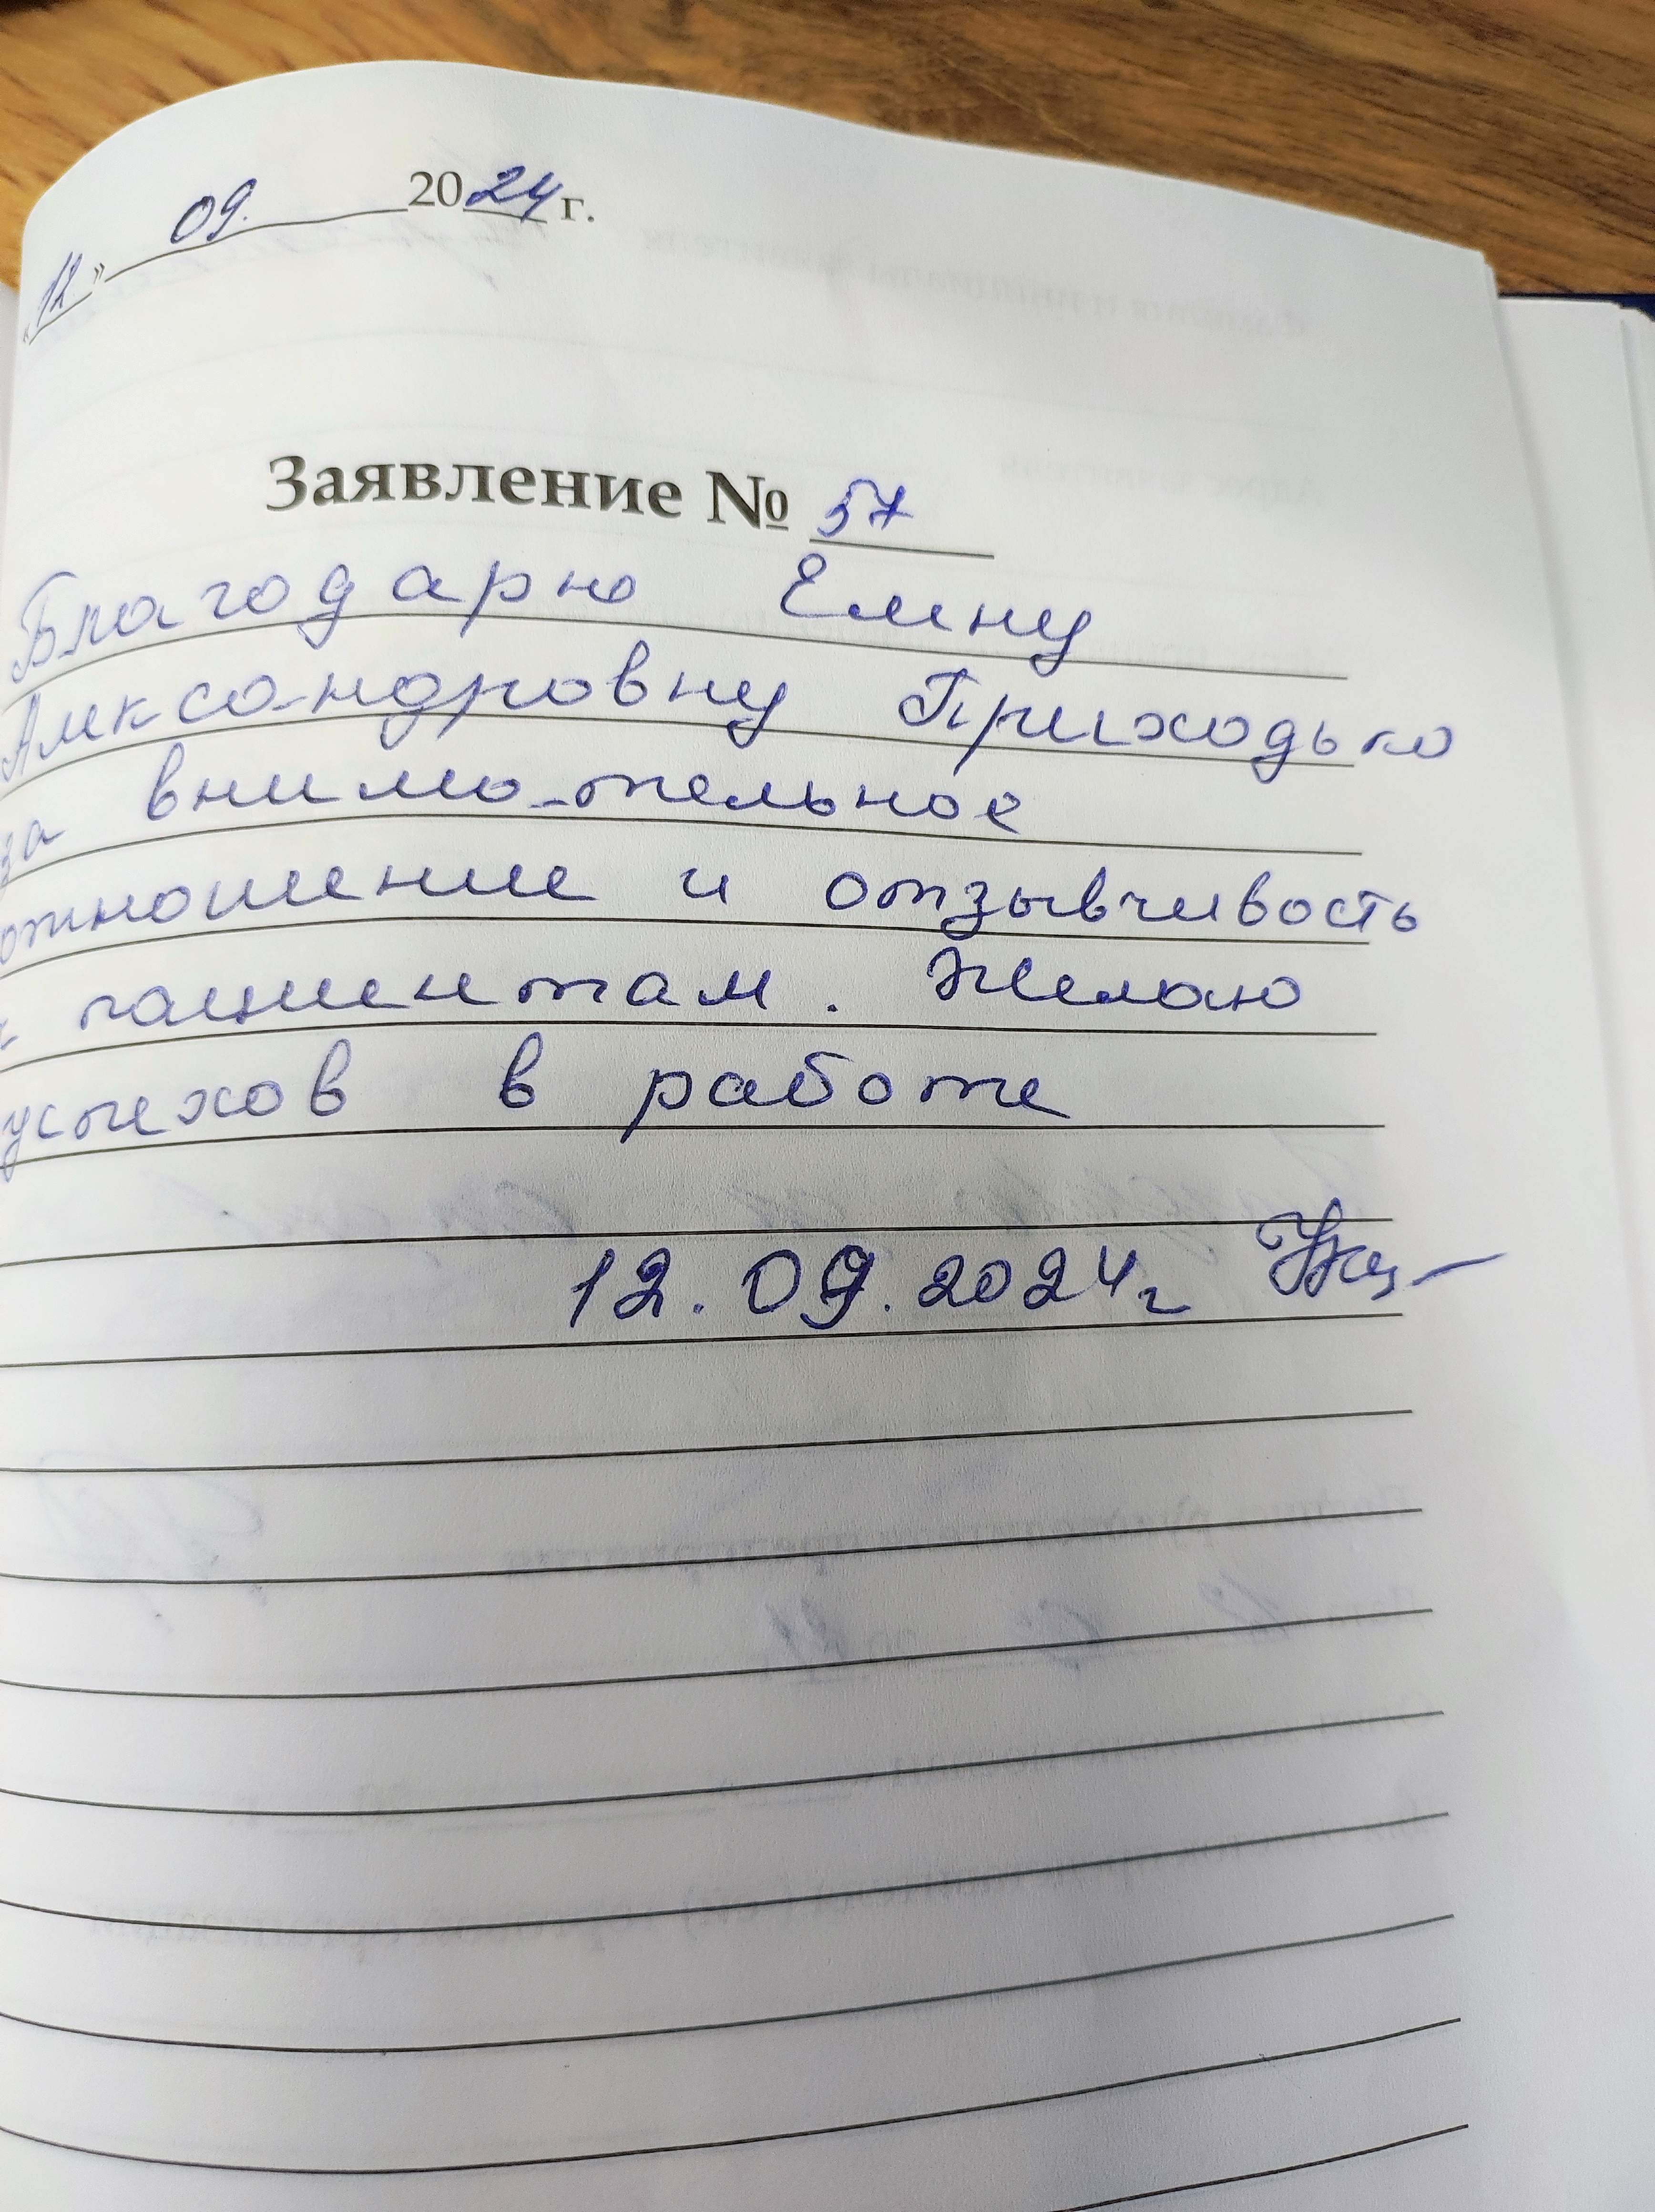 «12» 09. 2024 г.
Заявление № 57
Благодарю Елену
Александровну Приходько
за внимательное
отношение и отзывчивость
к пациентам. Желаю
успехов в работе
12.09.2024г